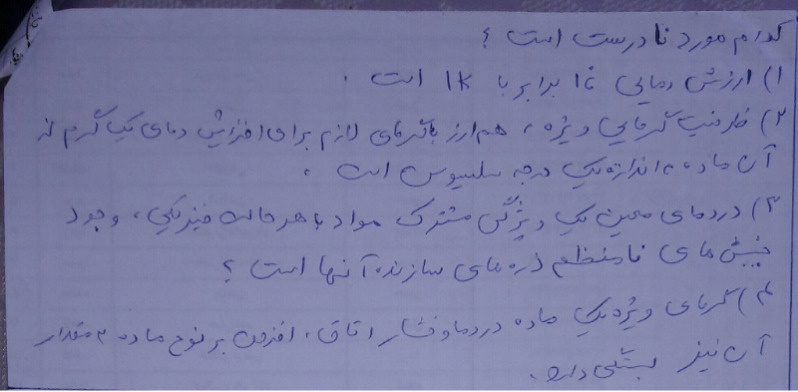 کدام مورد نادرست است ؟
۱) ارزش دمایی ۱°c برابر با ۱K است .
۲) ظرفیت گرمایی ویژه ، هم ارز با گرمای لازم برای افزایش دمای یک گرم از
آن ماده به اندازه یک درجه سلسیوس است .
۳) در دمای معین یک ویژگی مشترک مواد با هر حالت فیزیکی ، وجود
جنبش های نامنظم ذره های سازنده آنها است ؟
۴) گرمای ویژه یک ماده در دما و فشار اتاق ، افزون بر نوع ماده به مقدار
آن نیز بستگی دارد .